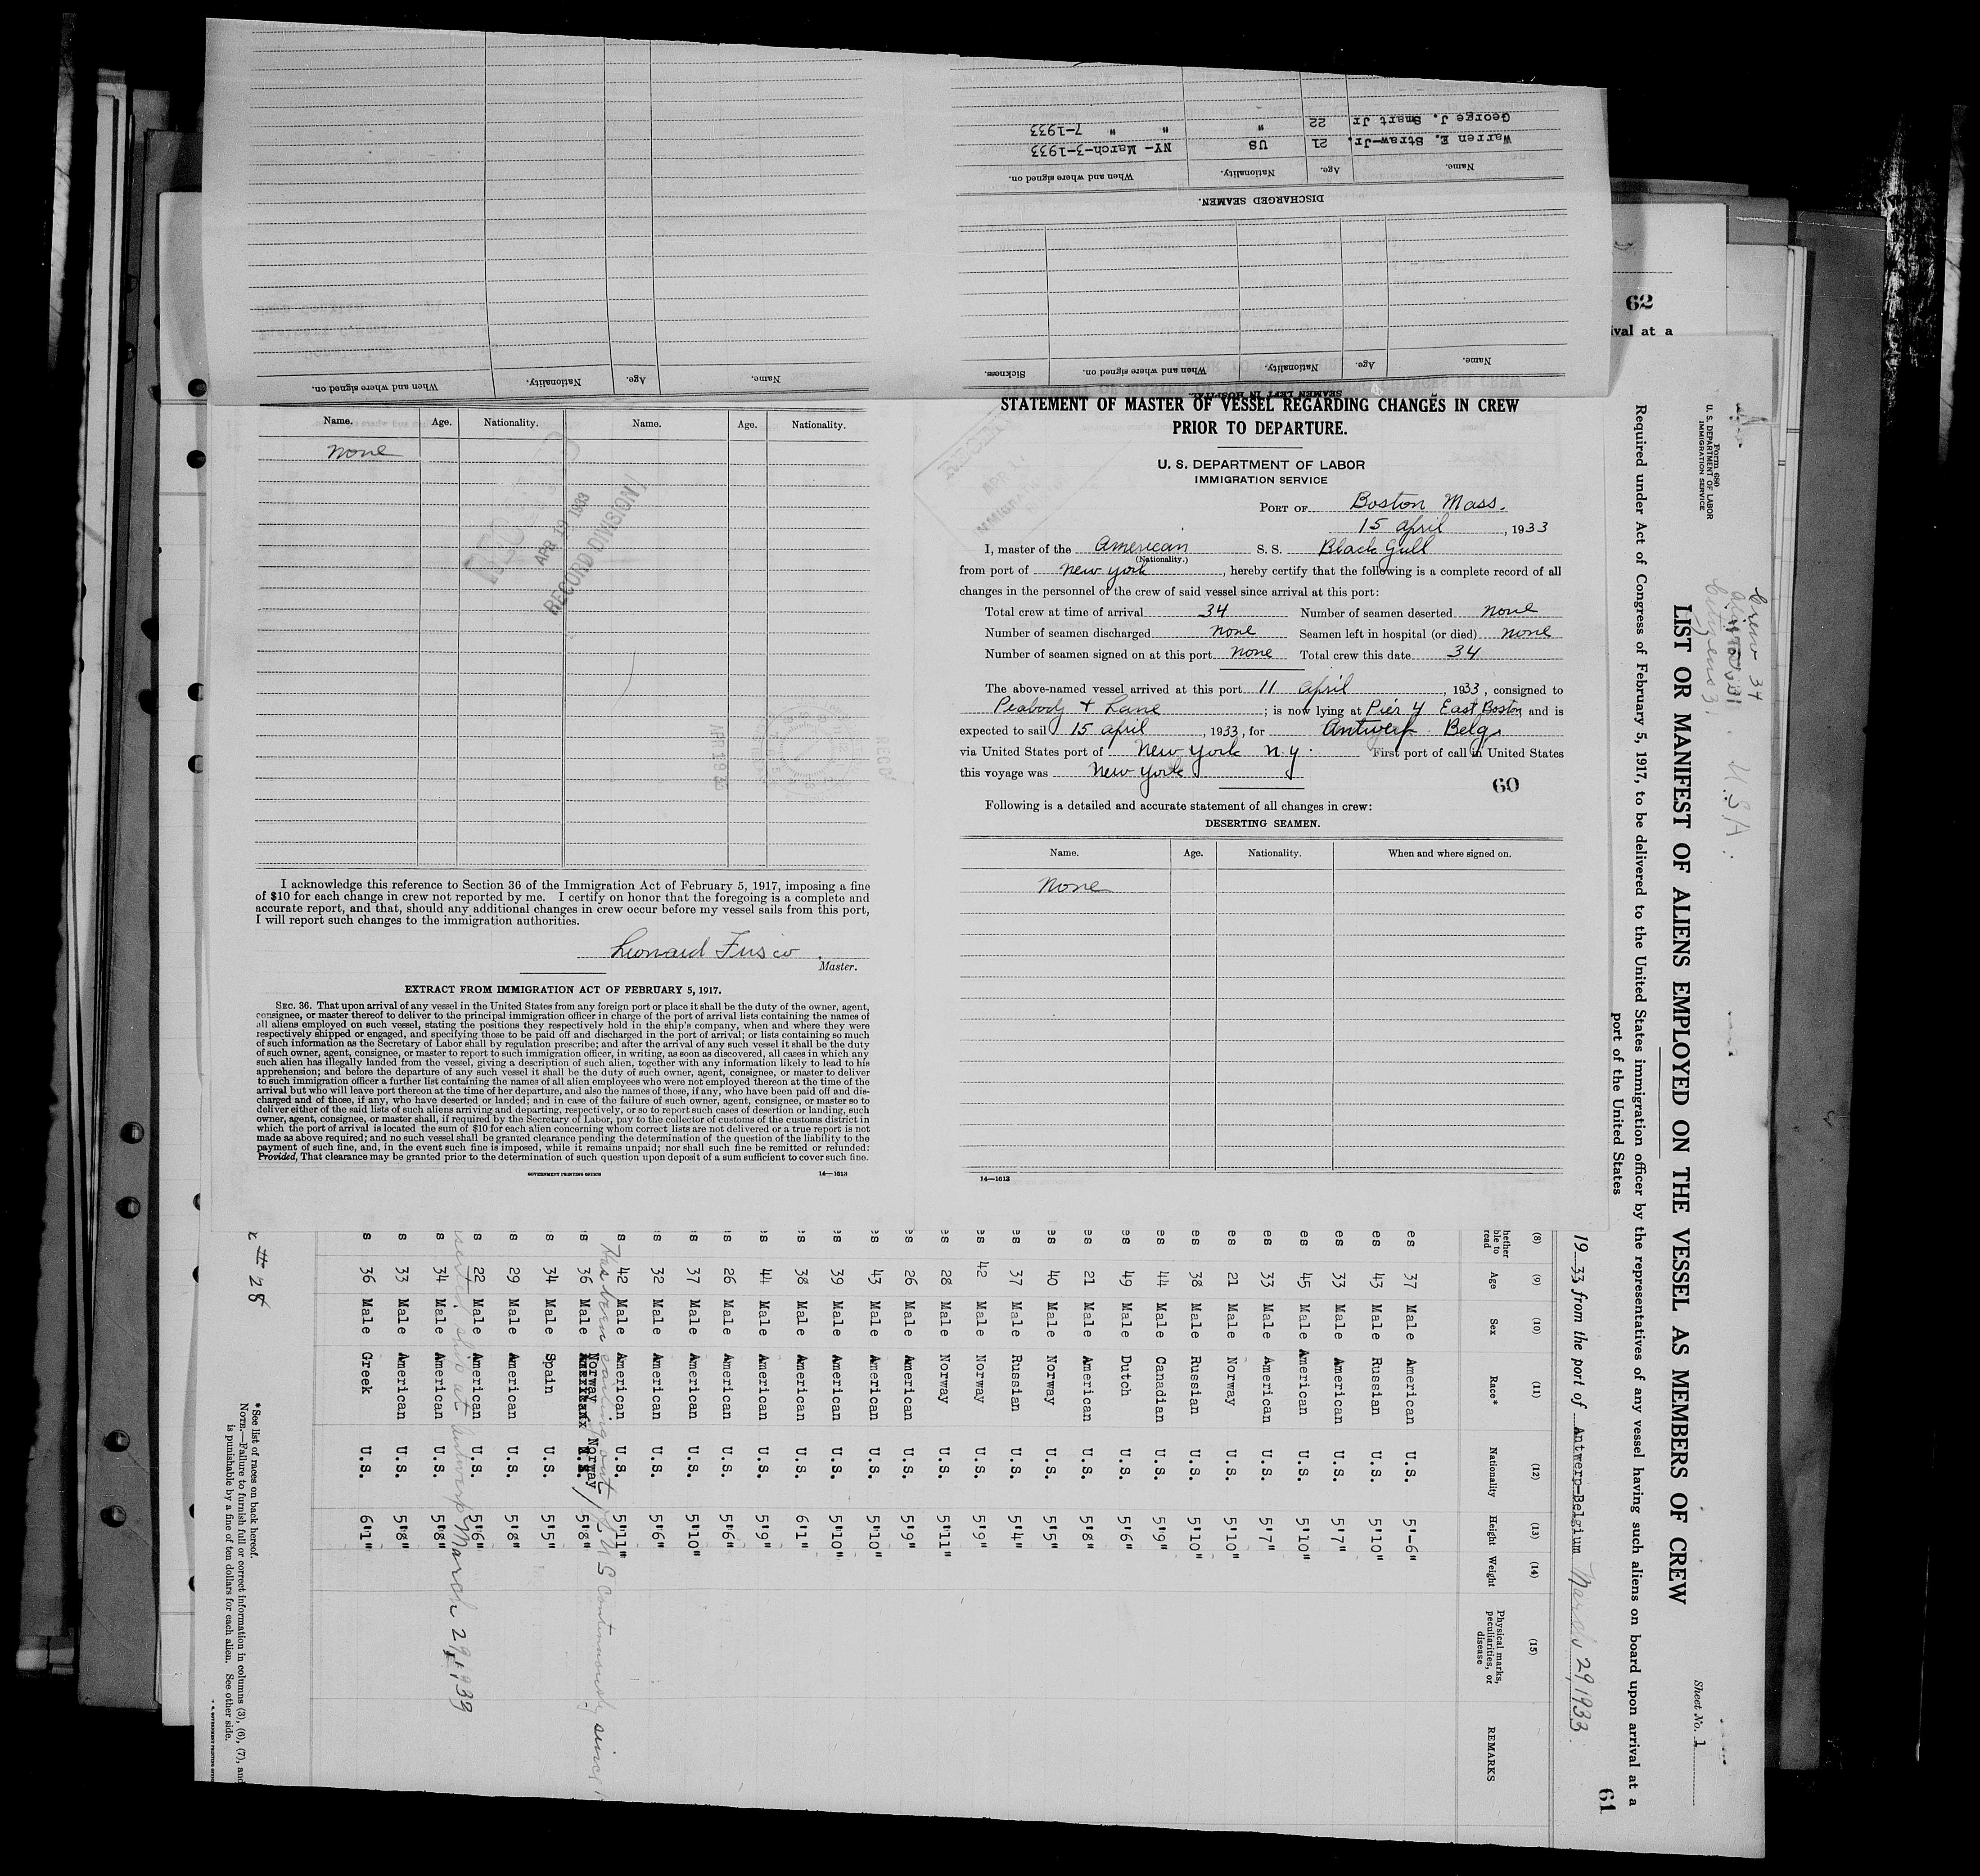 George J. Smart Jr 22 " " " 7-1933
Warren E. Straw-Jr. 21 US NY- March-3-1933
Name. Age. Nationality. When and where signed on.
DISCHARGED SEAMEN.
Name. Age. Nationality. When and where signed on. Sickness.
SEAMEN LEFT IN HOSPITAL
Name. Age. Nationality. When and where signed on.
Name. Age. Nationality. Name. Age. Nationality.
None
APR 19 1933
RECORD DIVISION
I acknowledge this reference to Section 36 of the Immigration Act of February 5, 1917, imposing a fine
of $10 for each change in crew not reported by me. I certify on honor that the foregoing is a complete and
accurate report, and that, should any additional changes in crew occur before my vessel sails from this port,
I will report such changes to the immigration authorities.
Leonard Fusco
Master.
EXTRACT FROM IMMIGRATION ACT OF FEBRUARY 5, 1917.
SEC. 36. That upon arrival of any vessel in the United States from any foreign port or place it shall be the duty of the owner, agent,
consignee, or master thereof to deliver to the principal immigration officer in charge of the port of arrival lists containing the names of
all aliens employed on such vessel, stating the positions they respectively hold in the ship's company, when and where they were
respectively shipped or engaged, and specifying those to be paid off and discharged in the port of arrival; or lists containing so much
of such information as the Secretary of Labor shall by regulation prescribe; and after the arrival of any such vessel it shall be the duty
of such owner, agent, consignee, or master to report to such immigration officer, in writing, as soon as discovered, all cases in which any
such alien has illegally landed from the vessel, giving a description of such alien, together with any information likely to lead to his
apprehension; and before the departure of any such vessel it shall be the duty of such owner, agent, consignee, or master to deliver
to such immigration officer a further list containing the names of all alien employees who were not employed thereon at the time of the
arrival but who will leave port thereon at the time of her departure, and also the names of those, if any, who have been paid off and dis-
charged and of those, if any, who have deserted or landed; and in case of the failure of such owner, agent, consignee, or master so to
deliver either of the said lists of such aliens arriving and departing, respectively, or so to report such cases of desertion or landing, such
owner, agent, consignee, or master shall, if required by the Secretary of Labor, pay to the collector of customs of the customs district in
which the port of arrival is located the sum of $10 for each alien concerning whom correct lists are not delivered or a true report is not
made as above required; and no such vessel shall be granted clearance pending the determination of the question of the liability to the
payment of such fine, and, in the event such fine is imposed, while it remains unpaid; nor shall such fine be remitted or refunded:
Provided, That clearance may be granted prior to the determination of such question upon deposit of a sum sufficient to cover such fine.
GOVERNMENT PRINTING OFFICE 14—1613
STATEMENT OF MASTER OF VESSEL REGARDING CHANGES IN CREW
PRIOR TO DEPARTURE.
U. S. DEPARTMENT OF LABOR
IMMIGRATION SERVICE
PORT OF Boston Mass.
15 april, 1933
I, master of the American S. S. Black Gull
(Nationality.)
from port of New York, hereby certify that the following is a complete record of all
changes in the personnel of the crew of said vessel since arrival at this port:
Total crew at time of arrival 34 Number of seamen deserted none
Number of seamen discharged none Seamen left in hospital (or died) none
Number of seamen signed on at this port none Total crew this date 34
The above-named vessel arrived at this port 11 April, 1933, consigned to
Peabody + Lane; is now lying at Pier 4 East Boston and is
expected to sail 15 april, 1933, for Antwerp Belg.
via United States port of New York n.y. First port of call in United States
this voyage was New York
60
Following is a detailed and accurate statement of all changes in crew:
DESERTING SEAMEN.
Name. Age. Nationality. When and where signed on.
None
14—1613
62
ival at a
Crew 34
U.S.A.
Form 680
U. S. DEPARTMENT OF LABOR
IMMIGRATION SERVICE
Sheet No. 1
LIST OR MANIFEST OF ALIENS EMPLOYED ON THE VESSEL AS MEMBERS OF CREW
Required under Act of Congress of February 5, 1917, to be delivered to the United States immigration officer by the representatives of any vessel having such aliens on board upon arrival at a
port of the United States
61
1933 from the port of Antwerp-Belgium March 29 1933
(8) (9) (10) (11) (12) (13) (14) (15)
hether ble to read Age Sex Race* Nationality Height Weight Physical marks, peculiarities, or disease REMARKS
es 37 Male American U.S. 5'-6"
es 43 Male Russian U.S. 5'10"
es 33 Male American U.S. 5'7"
es 45 Male American U.S. 5'10"
es 33 Male American U.S. 5'7"
es 21 Male Norway U.S. 5'10"
es 38 Male Russian U.S. 5'10"
es 44 Male Canadian U.S. 5'9"
es 49 Male Dutch U.S. 5'6"
es 21 Male American U.S. 5'8"
es 40 Male Norway U.S. 5'5"
es 37 Male Russian U.S. 5'4"
es 42 Male Norway U.S. 5'9"
es 28 Male Norway U.S. 5'11"
es 26 Male American U.S. 5'9"
es 43 Male American U.S. 5'10"
es 39 Male American U.S. 5'10"
es 38 Male American U.S. 6'1"
es 44 Male American U.S. 5'9"
es 26 Male American U.S. 5'6"
s 37 Male American U.S. 5'10"
s 32 Male American U.S. 5'6"
s 42 Male American U.S. 5'11"
Has been sailing out of U S Continuously since
s 36 Male Norway Norway 5'8"
s 34 Male Spain U.S. 5'5"
s 29 Male American U.S. 5'8"
s 22 Male American U.S. 5'6"
ship at Antwerp March 29, 1933
s 34 Male American U.S. 5'8"
s 33 Male American U.S. 5'8"
s 36 Male Greek U.S. 6'1"
# 28
*See list of races on back hereof.
NOTE.—Failure to furnish full or correct information in columns (3), (6), (7), and
is punishable by a fine of ten dollars for each alien. See other side.